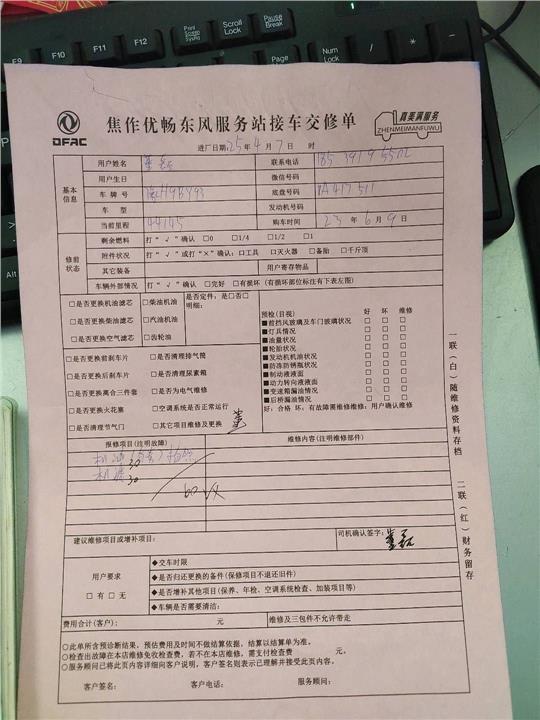 F9
F10
F11
F12
Print Screen
SysRq
Scroll Lock
Pause Break
Home
Num Lock
Alt
DFAC
焦作优畅东风服务站接车交修单
真美满服务
ZHENMEIMANFUWU
进厂日期:25年4月7日 时
基本信息
用户姓名
联系电话
用户生日
微信号码
车牌号
底盘号码
车型
发动机号码
当前里程 44145
购车时间 23年6月9日
修前状态
剩余燃料 打“√”确认 □0 □1/4 □1/2 □1
附件状况 打“√”或打“×”确认:□工具 □灭火器 □备胎 □千斤顶
其它装备
用户寄存物品
车辆外部情况 打“√”确认 □完好 □有损坏(有损部位标注有下表左图)
□是否更换机油滤芯 □柴油机油
是否定件:是□否□
明细:
□是否更换柴油滤芯 □汽油机油
□是否更换空气滤芯 □齿轮油
□是否更换前刹车片 □是否清理排气筒
□是否更换后刹车片 □是否清理尿素箱
□是否更换离合三件套 □是否为电气维修
□是否更换火花塞 □空调系统是否正常运行
□是否清理节气门 □其它项目维修及更换
预检(目视) 好 坏 维修
■前挡风玻璃及车门玻璃状况 □ □ □
■灯具情况 □ □ □
■油量状况 □ □ □
■轮胎状况 □ □ □
■发动机机油状况 □ □ □
■防冻防锈瓶状况 □ □ □
■制动液液面 □ □ □
■动力转向液液面 □ □ □
■变速箱漏油情况 □ □ □
■后桥漏油情况 □ □ □
好:合格 坏:有故障需维修维修:用户确认维修
报修项目(注明故障)
维修内容(注明维修部件)
30
机滤 30
60
建议维修项目或增补项目:
司机确认签字:
用户要求
□有□无
◆交车时限
◆是否归还更换的备件(保修项目不退还旧件)
◆是否增补其他项目(保养、年检、空调系统检查、加装项目等)
◆车辆是否需要清洁:
费用合计(客户): 元
维修及三包件不允许带走
○此单所含预诊断结果,预估费用及时间不做结算依据,结算以结算单为准。
○检查出故障在本店维修免收检查费,若不在本店维修,需支付检查费 元。
○服务顾问已将此页内容详细向客户说明,客户签名则表示已理解并接受此页内容。
客户签名: 客户电话: 服务顾问:
一联(白)随维修资料存档
二联(红)财务留存